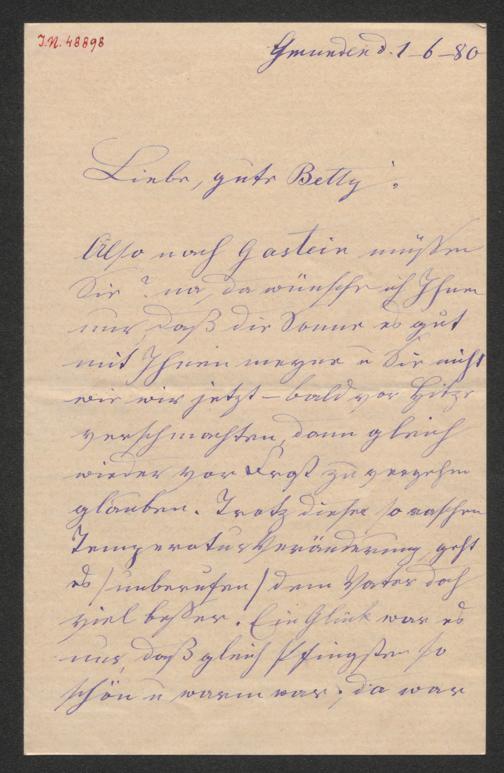 I.N. 48898
Gmunden d. 1-6-80
Liebe, gute Betty!
Also nach Gastein müssen
Sie? na, da wünsche ich Ihnen
nur, daß die Sonne es gut
mit Ihnen meyne u Sie nicht
wie wir jetzt – bald vor Hitze
verschmachten, dann gleich
wieder vor Frost zu vergehen
glauben. Trotz dieser so raschen
Temperatur Veränderung, geht
es /unberufen/ dem Vater doch
viel besser. Ein Glück war es
nur, daß gleich Pfingsten so
schön u warm war; da war